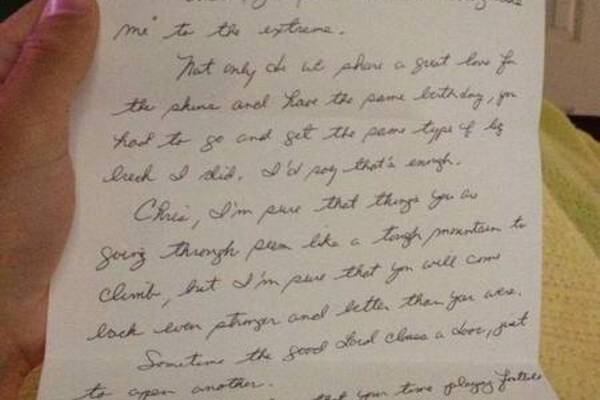 me" to the extreme.
Not only do we share a great love for
the skins and have the same birthday, you
had to go and get the same type of leg
break I did. I'd say that's enough.
Chris, I'm sure that things you are
going through seem like a tough mountain to
climb, but I'm sure that you will come
back even stronger and better than you were.
Sometime the good Lord closes a door, just
to open another.
that your time playing football